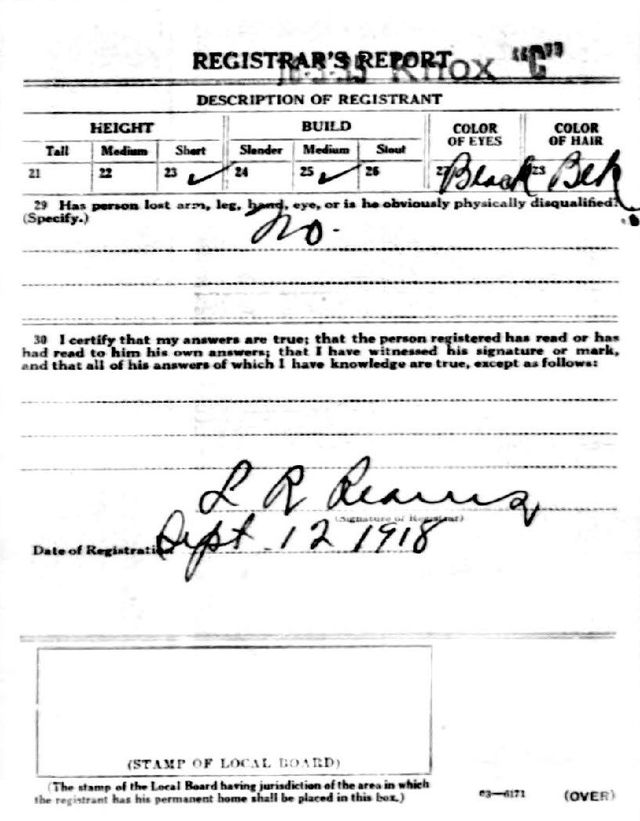 REGISTRAR'S REPORT
Knox "C"
DESCRIPTION OF REGISTRANT
HEIGHT BUILD COLOR OF EYES COLOR OF HAIR
Tall Medium Short Slender Medium Stout
21 22 23 ✓ 24 25 ✓ 26 27 Black 28 Blk
29 Has person lost arm, leg, hand, eye, or is he obviously physically disqualified?
(Specify.)
No.
30 I certify that my answers are true; that the person registered has read or has
had read to him his own answers; that I have witnessed his signature or mark,
and that all of his answers of which I have knowledge are true, except as follows:
L R
(Signature of Registrar)
Date of Registration Sept. 12 1918
(STAMP OF LOCAL BOARD)
(The stamp of the Local Board having jurisdiction of the area in which
the registrant has his permanent home shall be placed in this box.)
03—6171 (OVER)